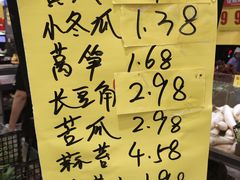 小冬瓜 1.38
莴笋 1.68
长豆角 2.98
苦瓜 2.98
蒜苔 4.58